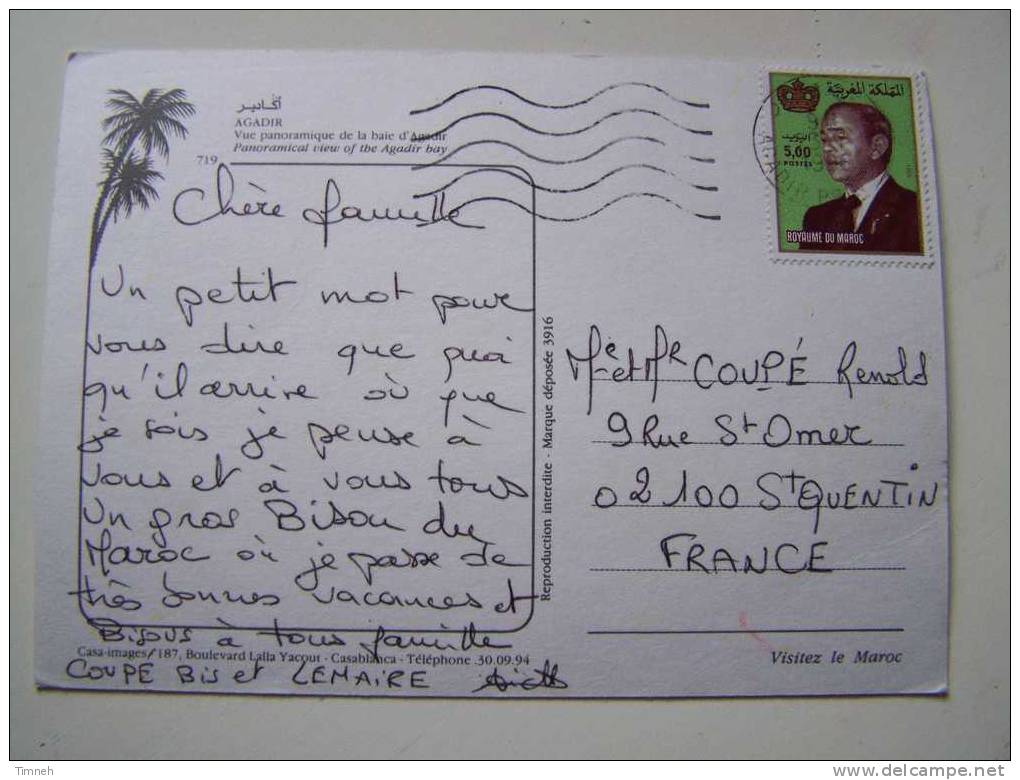 أكادير
AGADIR
Vue panoramique de la baie d'Agadir
Panoramical view of the Agadir bay
719
Chère famille
Un petit mot pour
vous dire que quoi
qu'il arrive où que
je sois je pense à
vous et à vous tous
Un gros Bisou du
Maroc où je passe de
très bonnes vacances et
Bisous à tous famille
COUPE Bis et LEMAIRE
Casa-images / 187, Boulevard Lalla Yacout - Casablanca - Téléphone .30.09.94
Reproduction interdite - Marque déposée 3916
المملكة المغربية
البريد
5,00
POSTES
ROYAUME DU MAROC
AGADIR
Me et Mr COUPÉ Renold
9 Rue St Omer
02100 St QUENTIN
FRANCE
Visitez le Maroc
Timneh
delcampe.net